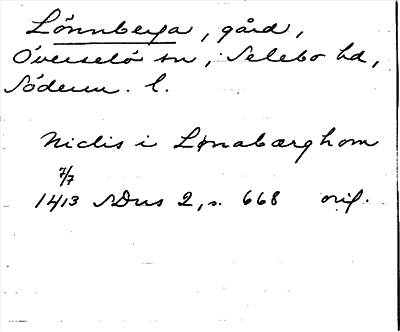 Lönnberga, gård,
Överselö sn, Selebo hd,
Söderm. l.
Niclis i Lønabærghom
7/7
1413 SDns 2, s. 668 orig.